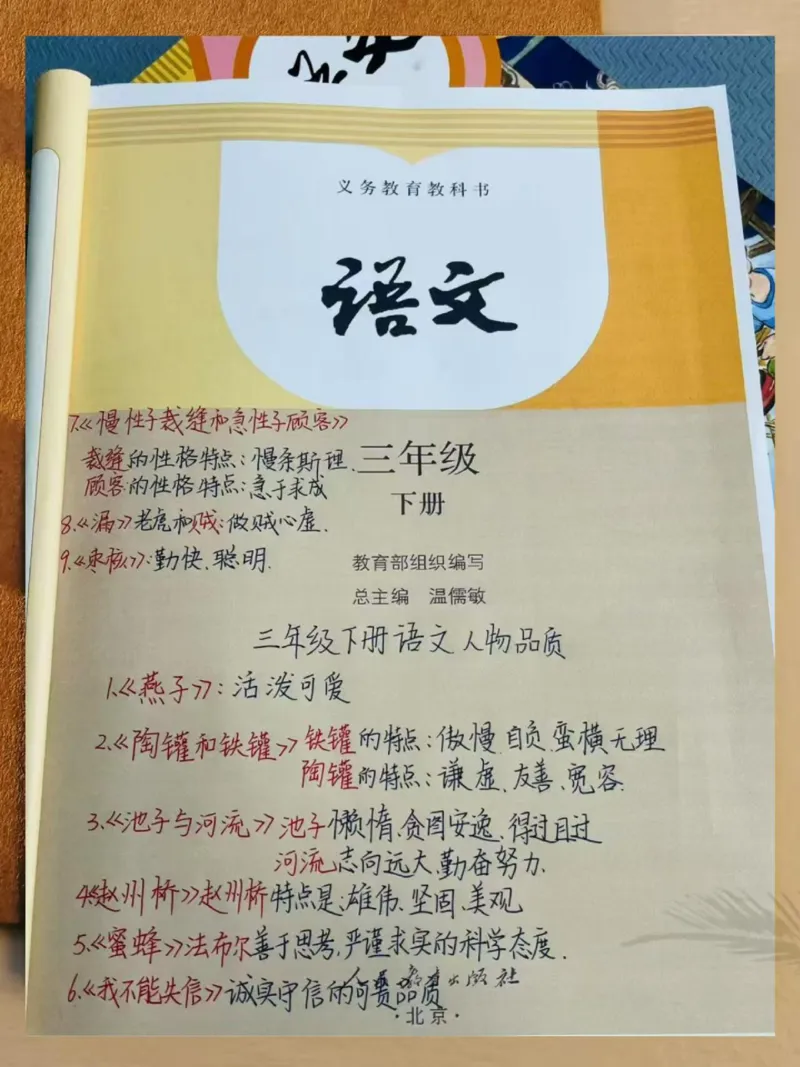 义务教育教科书
语文
7.《慢性子裁缝和急性子顾客》
裁缝的性格特点：慢条斯理、
三年级
顾客的性格特点：急于求成
下册
8.《漏》老虎和贼：做贼心虚.
9.《枣核》：勤快、聪明.
教育部组织编写
总主编 温儒敏
三年级下册语文人物品质
1.《燕子》：活泼可爱
2.《陶罐和铁罐》铁罐的特点：傲慢 自负 蛮横无理
陶罐的特点：谦虚、友善、宽容.
3.《池子与河流》池子懒惰、贪图安逸、得过且过
河流志向远大、勤奋努力.
4.《赵州桥》赵州桥特点是：雄伟、坚固、美观
5.《蜜蜂》法布尔善于思考，严谨求实的科学态度.
6.《我不能失信》诚实守信的可贵品质
出版社
·北京·